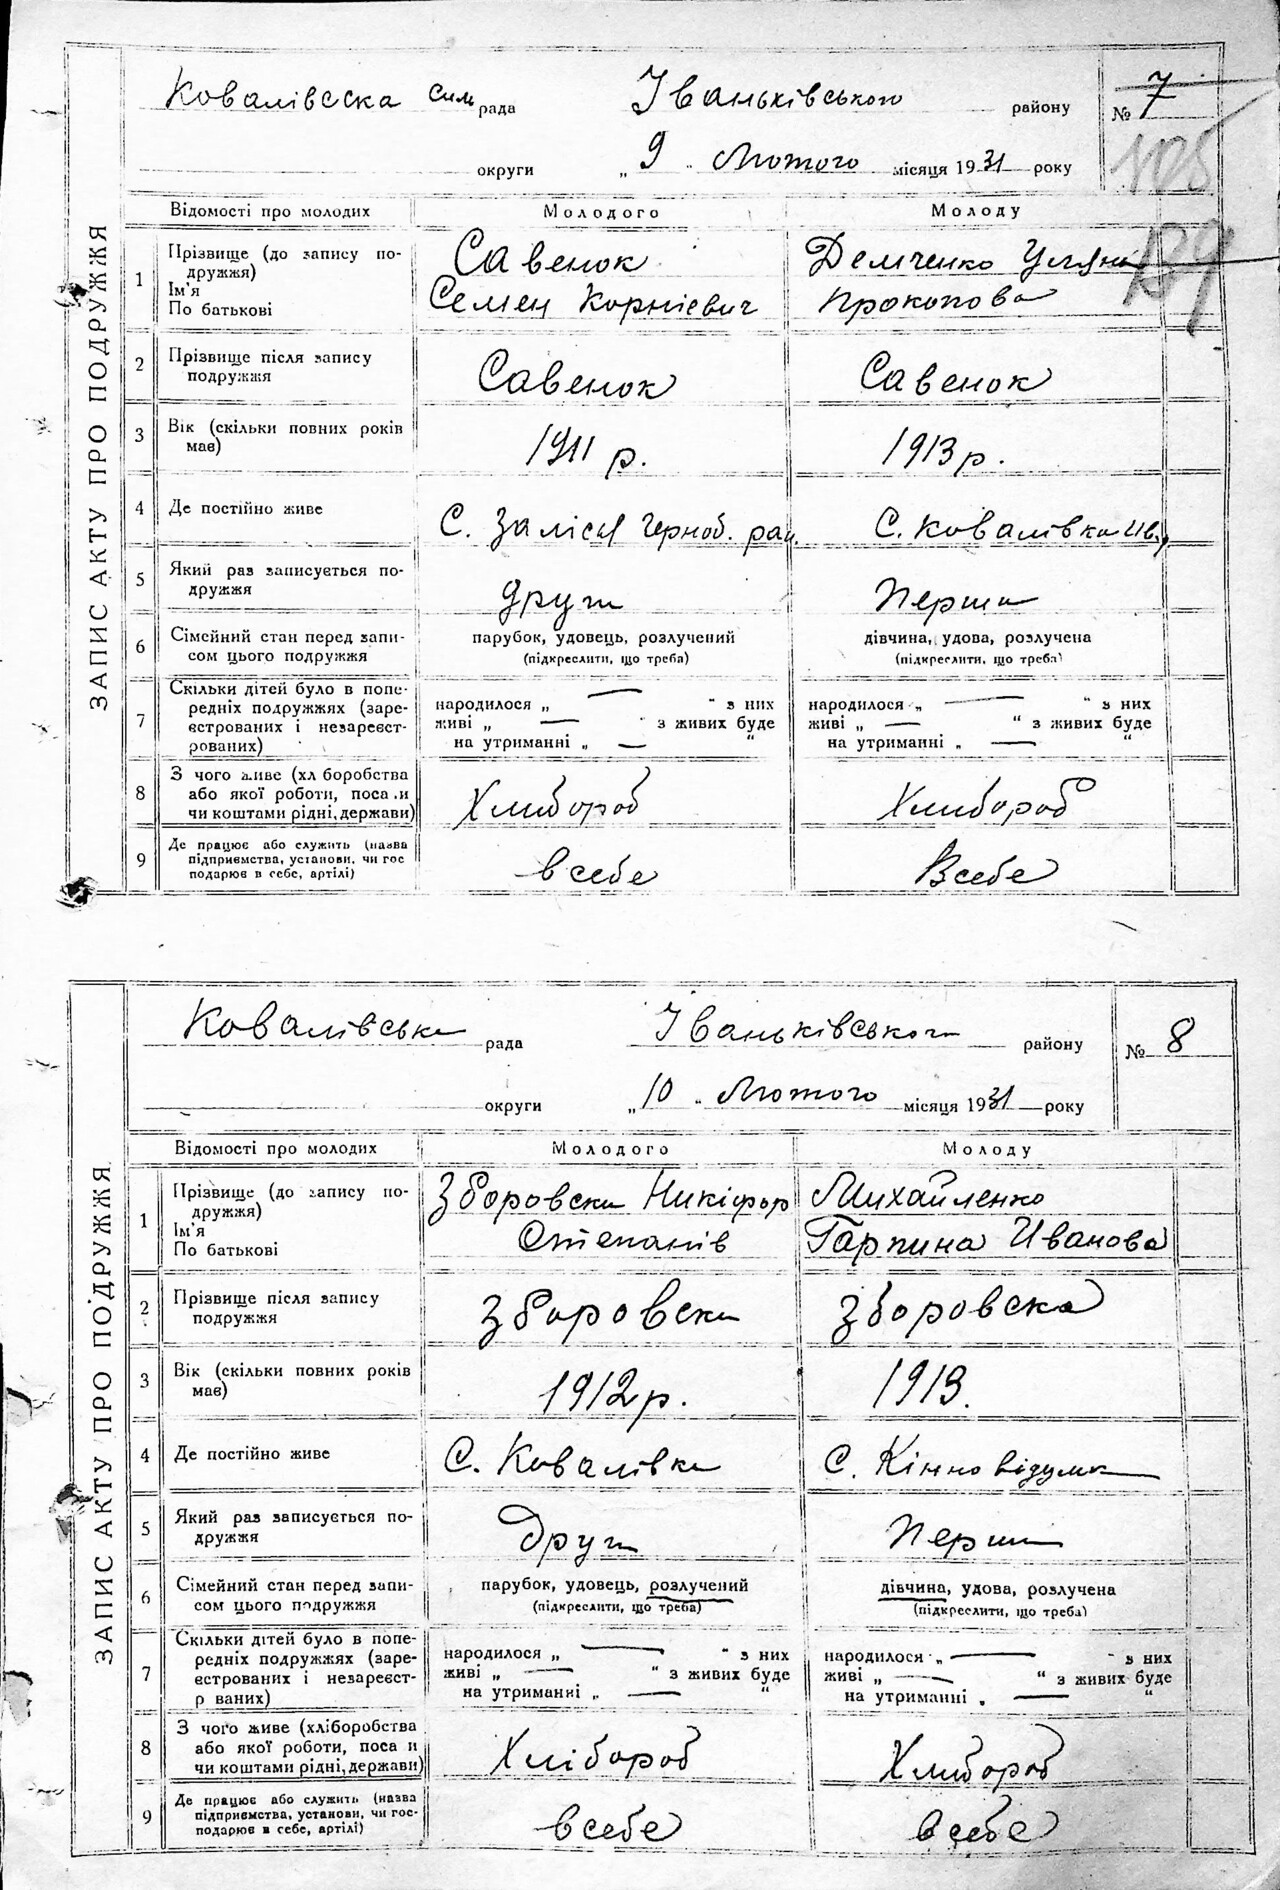 ЗАПИС АКТУ ПРО ПОДРУЖЖЯ
Ковалівська Сил рада Іваньківського району № 7
105
округи „ 9 „ Лютого місяця 1931 року
Відомості про молодих Молодого Молоду
139
1 Прізвище (до запису по-
дружжя)
Ім'я
По батькові
Савенок
Семен Корнієвич
Демченко Уляна
Прокопова
2 Прізвище після запису
подружжя
Савенок Савенок
3 Вік (скільки повних років
має)
1911 р. 1913 р.
4 Де постійно живе С. Залісся Черноб. рай. С. Ковалівка Ів.
5 Який раз записується по-
дружжя
други перши
6 Сімейний стан перед запи-
сом цього подружжя
парубок, удовець, розлучений
(підкреслити, що треба)
дівчина, удова, розлучена
(підкреслити, що треба)
7 Скільки дітей було в попе-
редніх подружжях (заре-
єстрованих і незареєст-
рованих)
народилося „ — “ з них
живі „ — “ з живих буде
на утриманні „ — “
народилося „ — “ з них
живі „ — “ з живих буде
на утриманні „ — “
8 З чого живе (хл боробства
або якої роботи, поса и
чи коштами рідні, держави)
Хлибороб Хлибороб
9 Де працює або служить (назва
підприємства, установи, чи гос
подарює в себе, артілі)
в себе Всебе
ЗАПИС АКТУ ПРО ПОДРУЖЖЯ
Ковалівська рада Іваньківського району № 8
округи „ 10 „ Лютого місяця 1931 року
Відомості про молодих Молодого Молоду
1 Прізвище (до запису по-
дружжя)
Ім'я
По батькові
Зборовски Никіфор
Степанів
Михайленко
Гарпина Иванова
2 Прізвище після запису
подружжя
Зборовски Зборовска
3 Вік (скільки повних років
має)
1912 р. 1913.
4 Де постійно живе С. Ковалівка С.
5 Який раз записується по-
дружжя
Други Перши
6 Сімейний стан перед запи-
сом цього подружжя
парубок, удовець, розлучений
(підкреслити, що треба)
дівчина, удова, розлучена
(підкреслити, що треба)
7 Скільки дітей було в попе-
редніх подружжях (заре-
єстрованих і незареєст-
р ваних)
народилося „ — “ з них
живі „ — “ з живих буде
на утриманні „ — “
народилося „ — “ з них
живі „ — “ з живих буде
на утриманні „ — “
8 З чого живе (хліборобства
або якої роботи, поса и
чи коштами рідні, держави)
Хлібороб Хлибороб
9 Де працює або служить (назва
підприємства, установи, чи гос-
подарює в себе, артілі)
в себе в себе